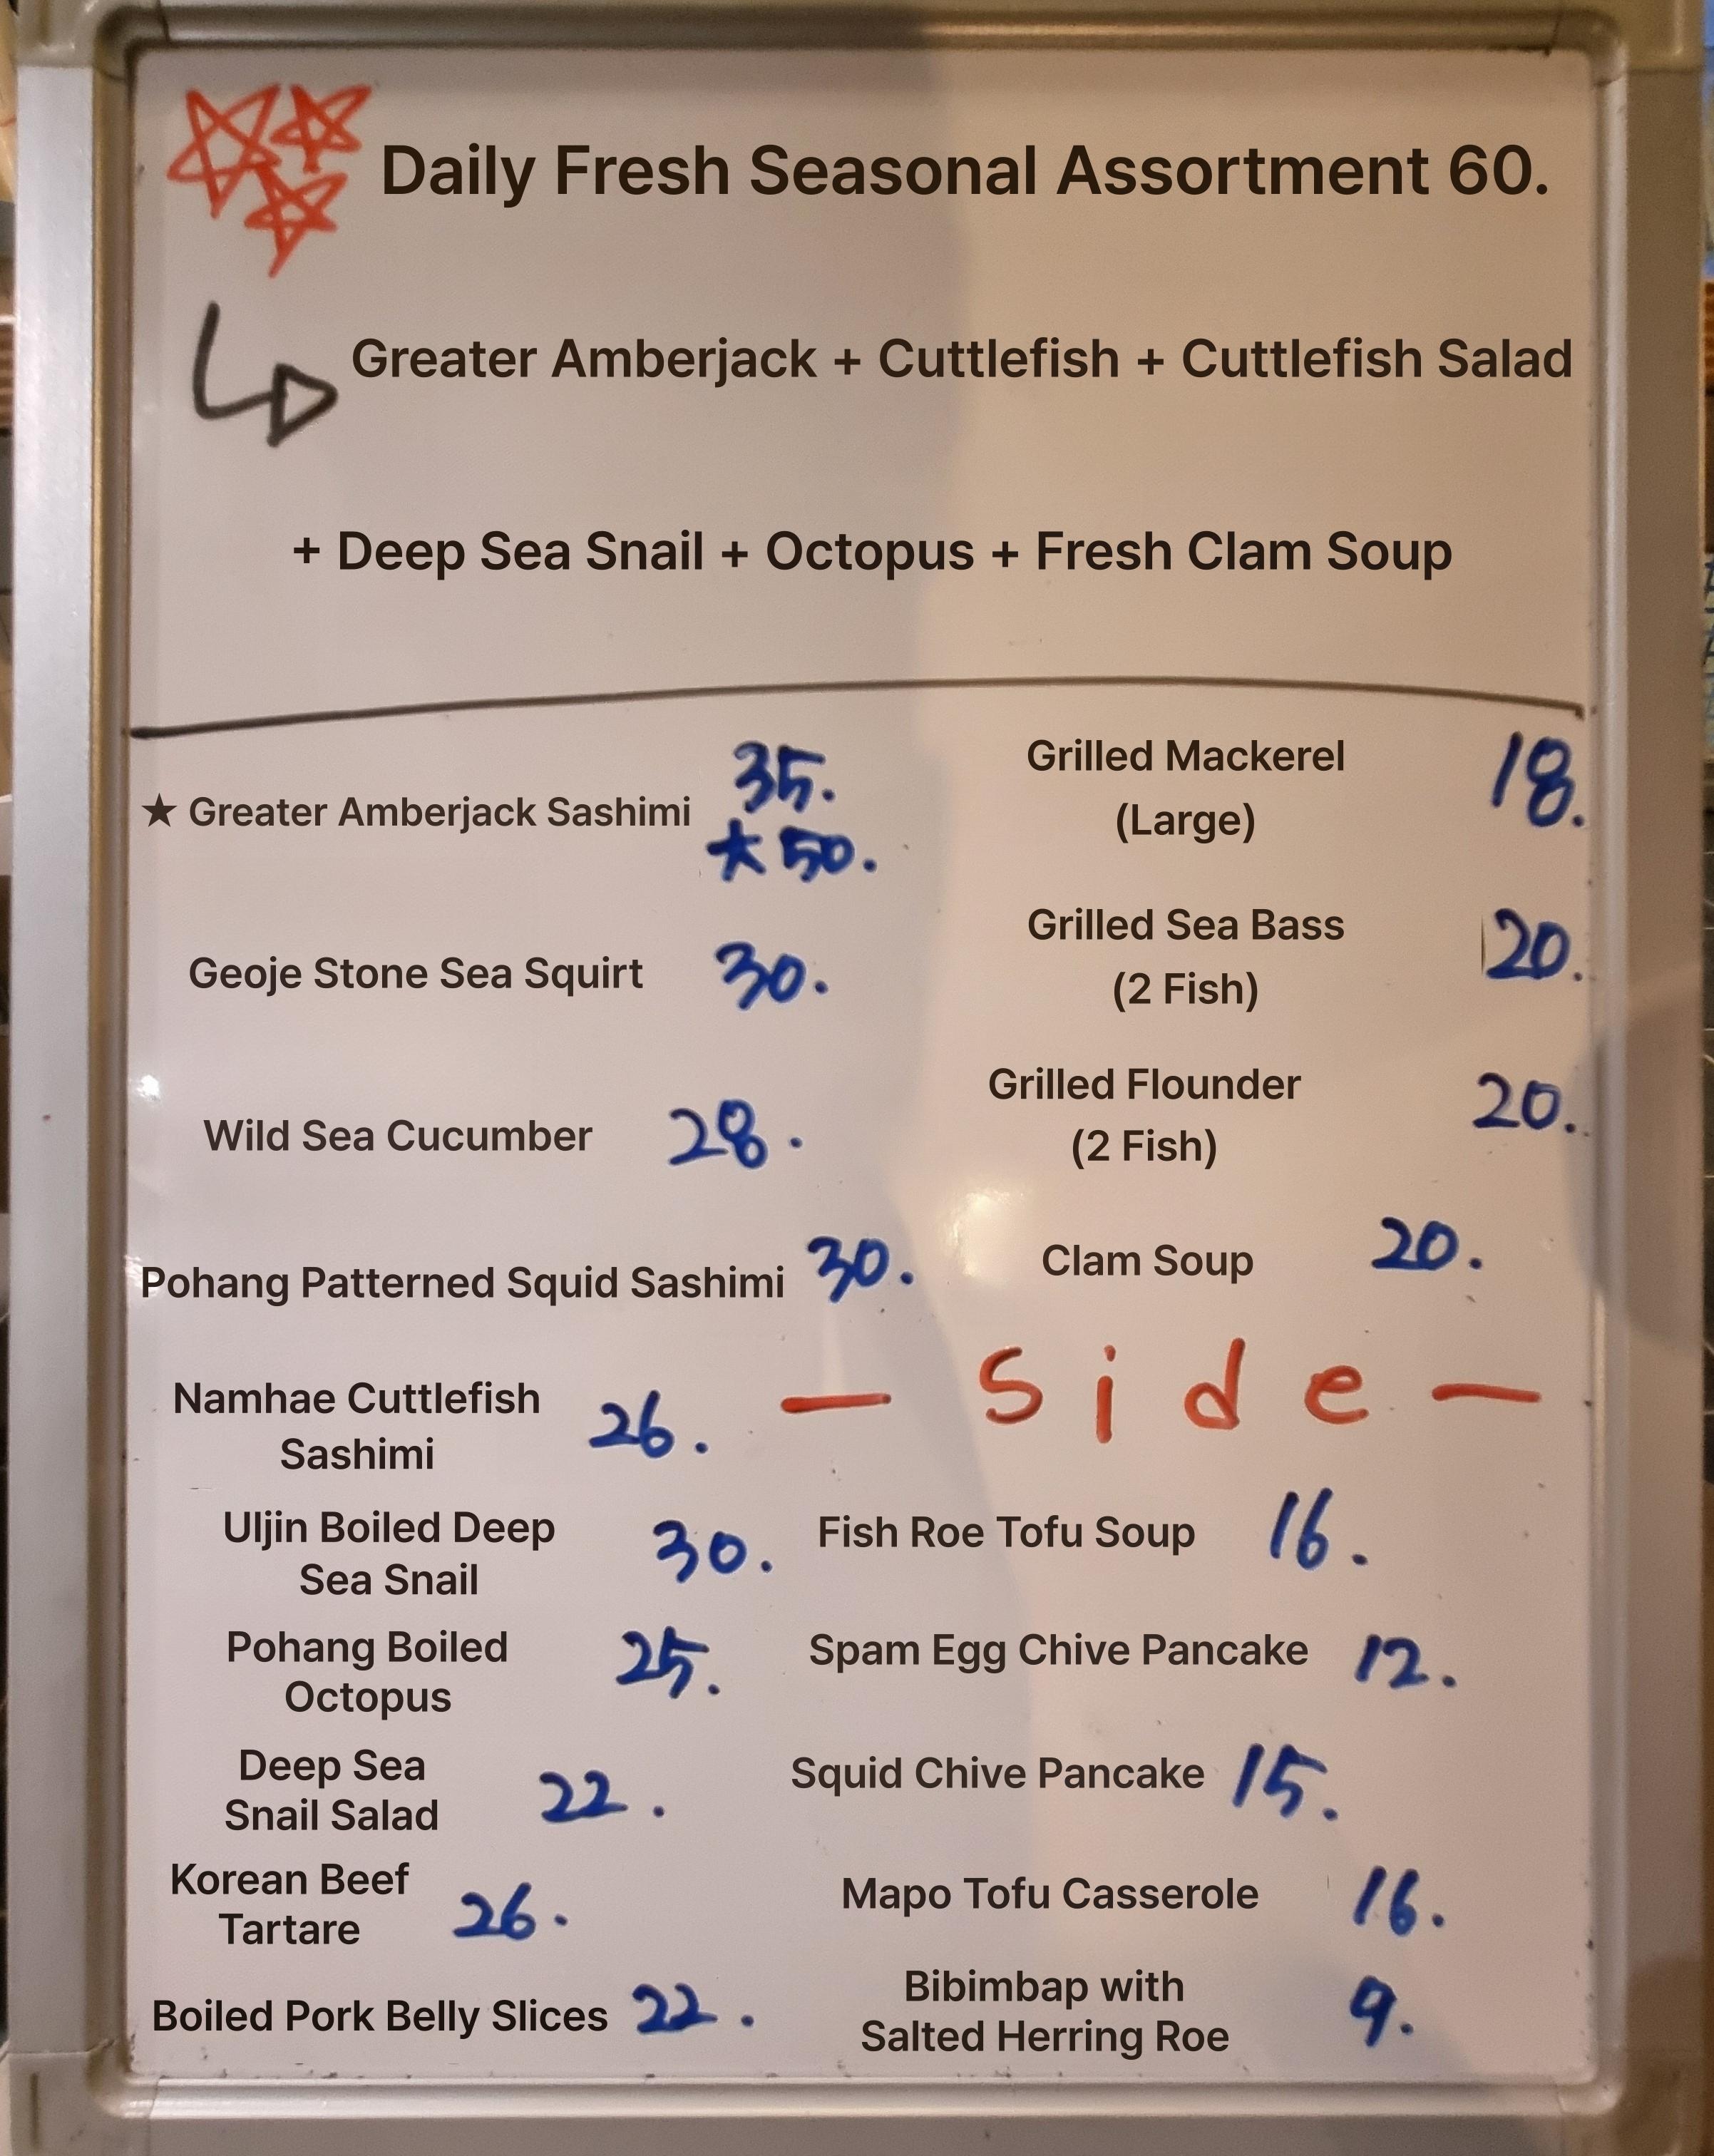 Daily Fresh Seasonal Assortment 60.
Greater Amberjack + Cuttlefish + Cuttlefish Salad
+ Deep Sea Snail + Octopus + Fresh Clam Soup
★ Greater Amberjack Sashimi 35.
★ 50.
Geoje Stone Sea Squirt 30.
Wild Sea Cucumber 28.
Pohang Patterned Squid Sashimi 30.
Namhae Cuttlefish
Sashimi 26.
Uljin Boiled Deep
Sea Snail 30.
Pohang Boiled
Octopus 25.
Deep Sea
Snail Salad 22.
Korean Beef
Tartare 26.
Boiled Pork Belly Slices 22.
Grilled Mackerel
(Large) 18.
Grilled Sea Bass
(2 Fish) 20.
Grilled Flounder
(2 Fish) 20.
Clam Soup 20.
— Side —
Fish Roe Tofu Soup 16.
Spam Egg Chive Pancake 12.
Squid Chive Pancake 15.
Mapo Tofu Casserole 16.
Bibimbap with
Salted Herring Roe 9.